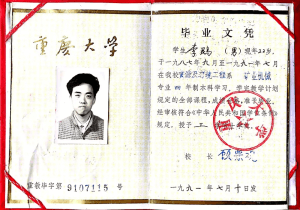 重庆大学
重教毕字第 9107115 号
毕业文凭
学生 李 (男) 现年22岁
于一九八七年九月至一九九一年七月
在我校 系 矿业机械
专业 四 年制本科学习，学完教学计划
规定的全部课程，成绩 ，准予毕业。
经审核符合《中华人民共和国学位条例》
规定，授予 工 学士学位。
校 长
一九九一年七月十日发